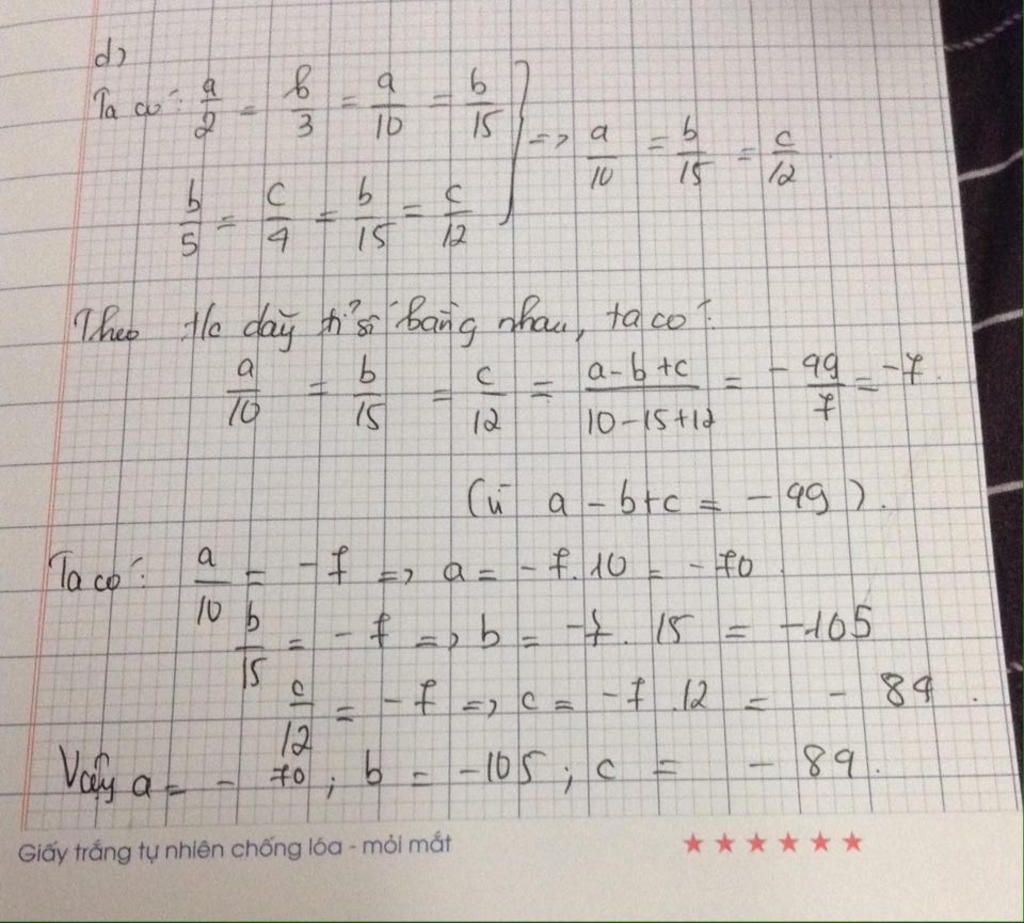 d)
Ta có: a/2 = b/3 = a/10 = b/15 } => a/10 = b/15 = c/12.
b/5 = c/4 = b/15 = c/12
Theo t/c dãy tỉ số bằng nhau, ta có:
a/10 = b/15 = c/12 = (a-b+c)/(10-15+12) = -49/7 = -7.
(vì a-b+c = -49).
Ta có: a/10 = -7 => a = -7.10 = -70.
b/15 = -7 => b = -7.15 = -105
c/12 = -7 => c = -7.12 = -84.
Vậy a = -70; b = -105; c = -84.
Giấy trắng tự nhiên chống lóa - mỏi mắt